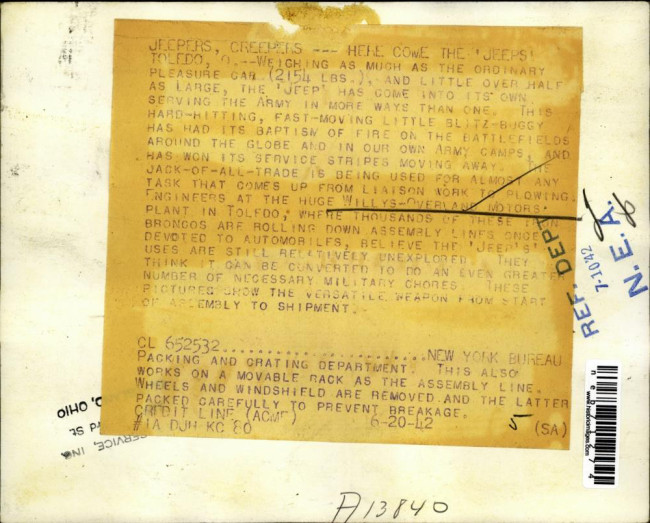 JEEPERS, CREEPERS --- HERE COME THE 'JEEPS'
TOLEDO, O.--WEIGHING AS MUCH AS THE ORDINARY
PLEASURE CAR (2154 LBS.), AND LITTLE OVER HALF
AS LARGE, THE 'JEEP' HAS COME INTO ITS OWN
SERVING THE ARMY IN MORE WAYS THAN ONE. THIS
HARD-HITTING, FAST-MOVING LITTLE BLITZ-BUGGY
HAS HAD ITS BAPTISM OF FIRE ON THE BATTLEFIELDS
AROUND THE GLOBE AND IN OUR OWN ARMY CAMPS, AND
HAS WON ITS SERVICE STRIPES MOVING AWAY. THE
JACK-OF-ALL-TRADE IS BEING USED FOR ALMOST ANY
TASK THAT COMES UP FROM LIAISON WORK TO PLOWING.
ENGINEERS AT THE HUGE WILLYS-OVERLAND MOTORS
PLANT IN TOLEDO, WHERE THOUSANDS OF THESE IRON
BRONCOS ARE ROLLING DOWN ASSEMBLY LINES ONCE
DEVOTED TO AUTOMOBILES, BELIEVE THE 'JEEP'S'
USES ARE STILL RELATIVELY UNEXPLORED. THEY
THINK IT CAN BE CONVERTED TO DO AN EVEN GREATER
NUMBER OF NECESSARY MILITARY CHORES. THESE
PICTURES SHOW THE VERSATILE WEAPON FROM START
OF ASSEMBLY TO SHIPMENT.
CL 652532.........................NEW YORK BUREAU
PACKING AND CRATING DEPARTMENT. THIS ALSO
WORKS ON A MOVABLE RACK AS THE ASSEMBLY LINE.
WHEELS AND WINDSHIELD ARE REMOVED AND THE LATTER
PACKED CAREFULLY TO PREVENT BREAKAGE.
CREDIT LINE (ACME) 6-20-42 (SA)
#1A DJH KC 80
REF. DEPT.
7-10-42
N. E. A.
SERVICE, INC.
rd St
O, OHIO
A13840